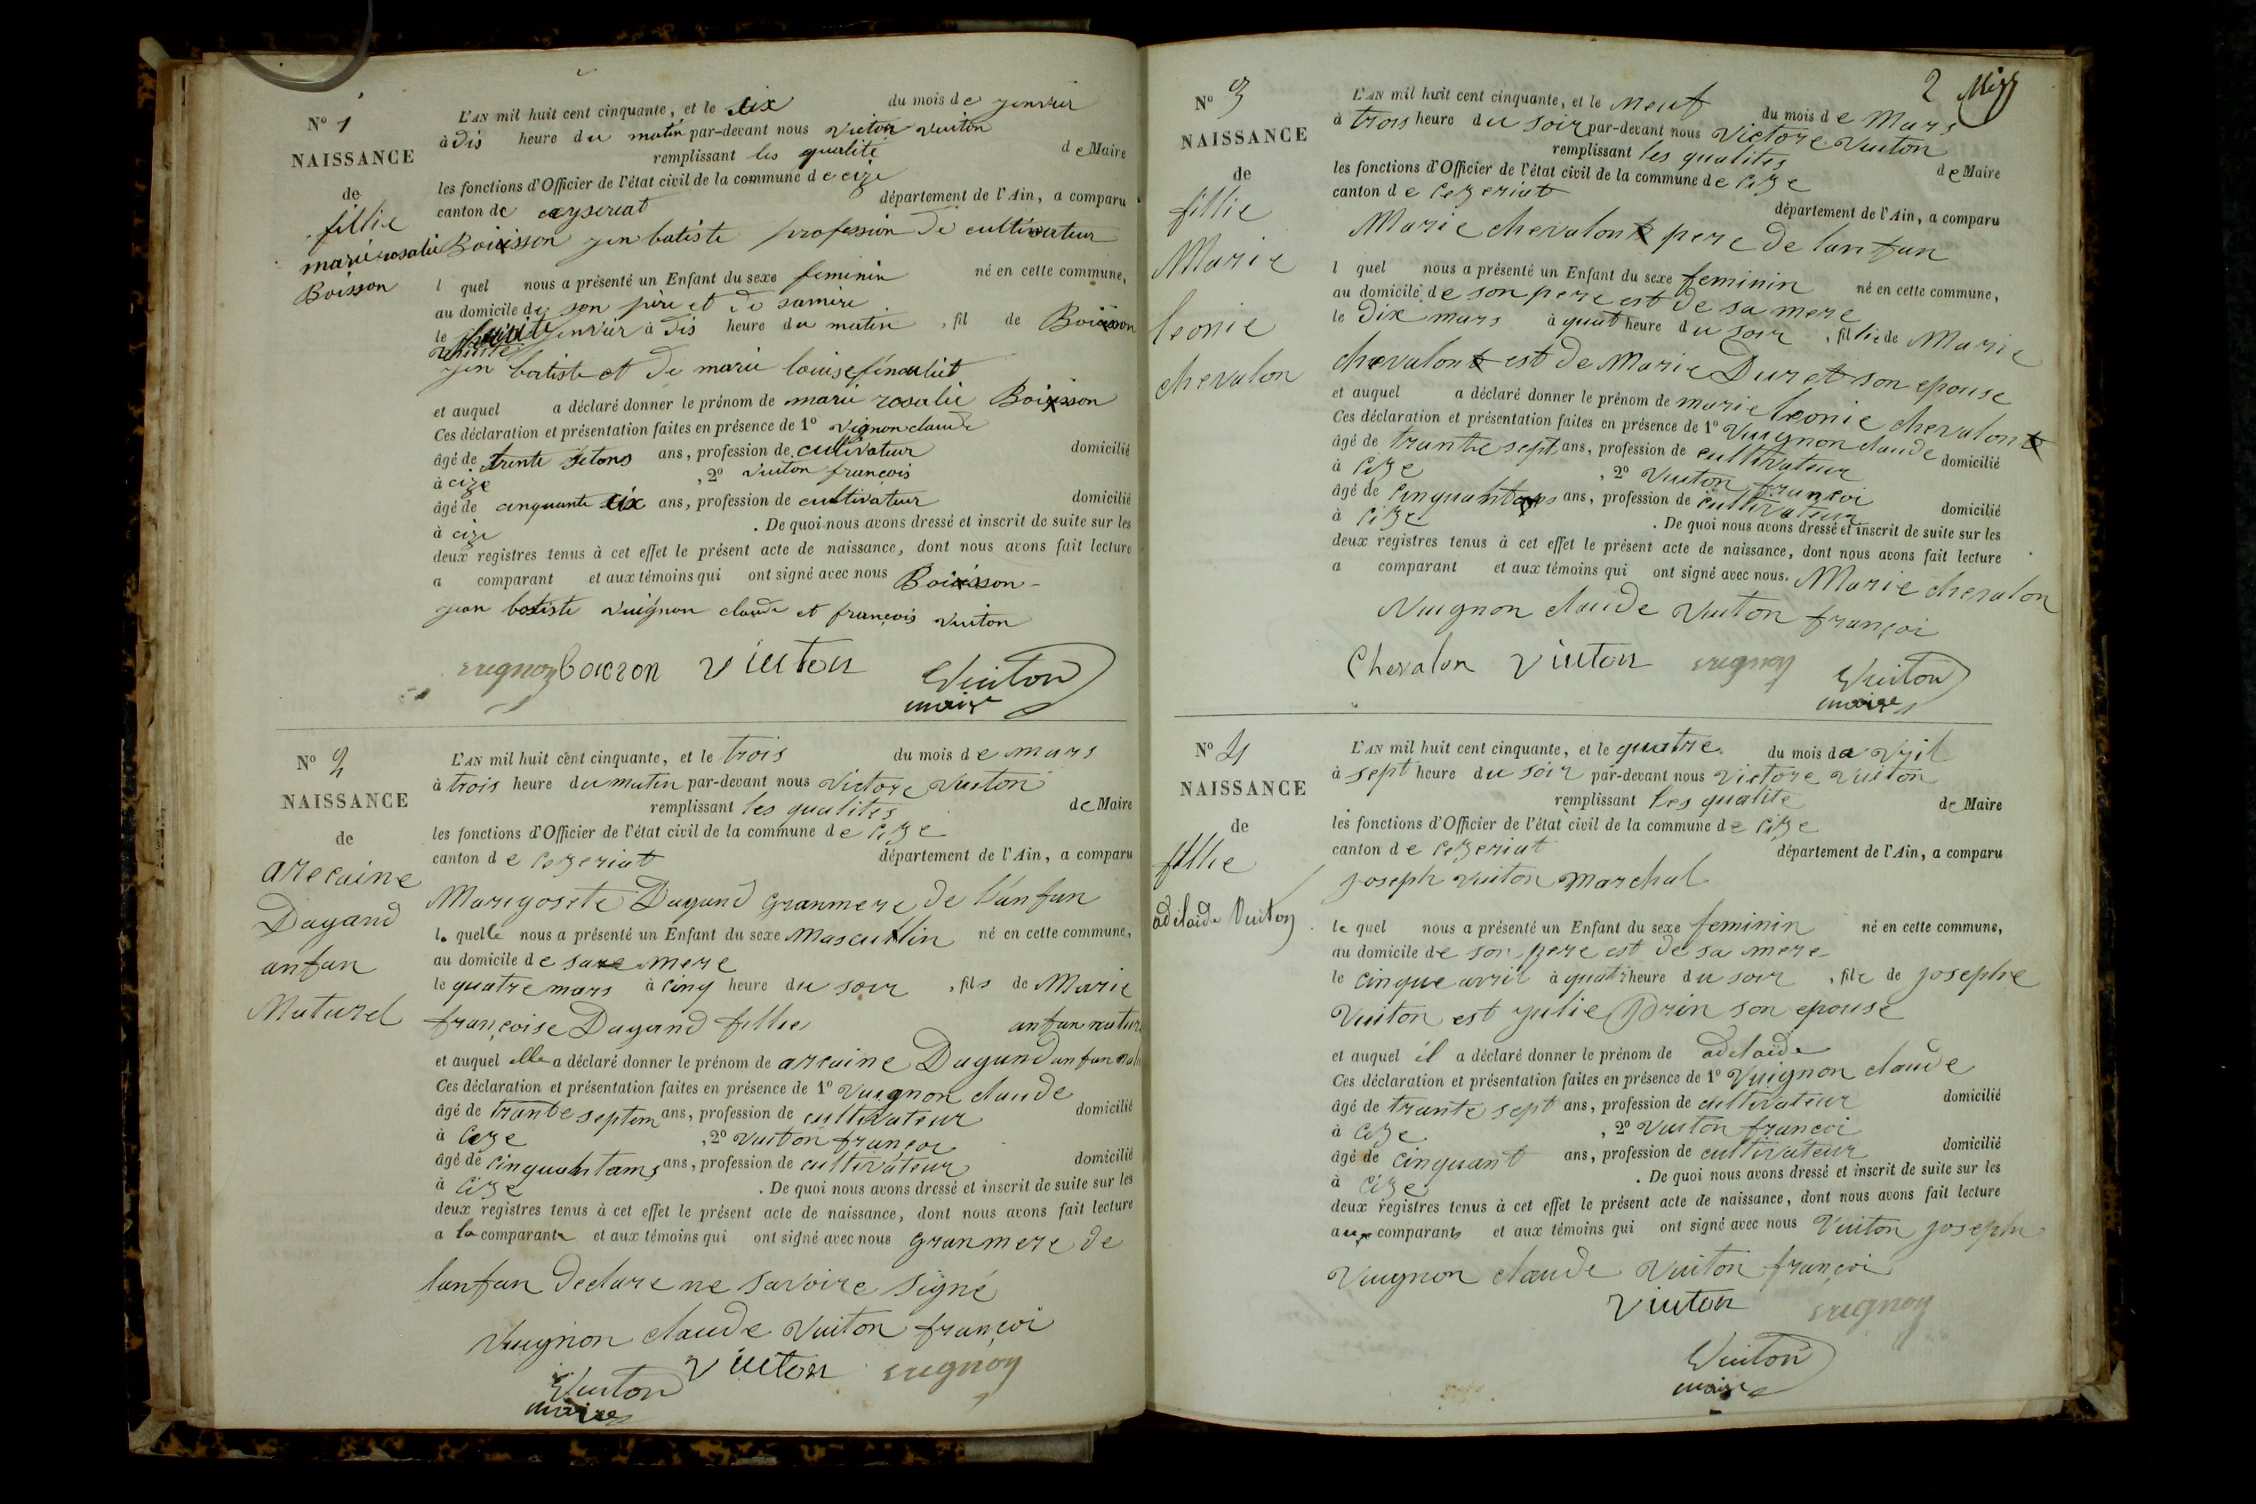 N° 1
NAISSANCE
de
fillie
marie rosalie
Boisson
L'AN mil huit cent cinquante, et le six du mois de jenvier
à dis heure du matin par-devant nous victor vuiton
remplissant les qualité de Maire
les fonctions d'Officier de l'état civil de la commune de cize
canton de ceyseriat département de l'Ain, a comparu
Boisson jen batiste profession de cultivateur
l quel nous a présenté un Enfant du sexe feminin né en cette commune,
au domicile de son père et de samère
le jenvier à dis heure du matin, fil de Boisson
jen batiste et de marie louise
et auquel a déclaré donner le prénom de marie rosalie Boisson
Ces déclaration et présentation faites en présence de 1° vignon claude
âgé de trente setans ans, profession de cultivateur domicilié
à cize, 2° vuiton françois
âgé de cinquante six ans, profession de cultivateur domicilié
à cize. De quoi nous avons dressé et inscrit de suite sur les
deux registres tenus à cet effet le présent acte de naissance, dont nous avons fait lecture
a comparant et aux témoins qui ont signé avec nous Boisson
jean batiste vuignon claude et françois vuiton
vuiton vuiton
maire
N° 2
NAISSANCE
de
arcaine
Dagand
anfan
Naturel
L'AN mil huit cent cinquante, et le trois du mois de mars
à trois heure du matin par-devant nous victore vuiton
remplissant les qualites de Maire
les fonctions d'Officier de l'état civil de la commune de cize
canton de cezeriat département de l'Ain, a comparu
Marigosete Dagand granmere de l'anfan
l quelle nous a présenté un Enfant du sexe Masculin né en cette commune,
au domicile de sa mere
le quatre mars à cinq heure du soir, fils de Marie
françoise Dagand fillie anfan natur
et auquel elle a déclaré donner le prénom de arcaine Dagand anfan
Ces déclaration et présentation faites en présence de 1° vuignon claude
âgé de trante septem ans, profession de cultivateur domicilié
à cize, 2° vuiton françoi
âgé de cinquantams ans, profession de cultivateur domicilié
à cize. De quoi nous avons dressé et inscrit de suite sur les
deux registres tenus à cet effet le présent acte de naissance, dont nous avons fait lecture
a la comparante et aux témoins qui ont signé avec nous granmere de
lanfan declare ne savoire signé
vuignon claude vuiton françoi
vuiton
vuiton
maire
2
N° 3
NAISSANCE
de
fillie
Marie
leonie
chevalon
L'AN mil huit cent cinquante, et le neuf du mois de Mars
à trois heure du soir par-devant nous victore vuiton
remplissant les qualites de Maire
les fonctions d'Officier de l'état civil de la commune de cize
canton de cezeriat département de l'Ain, a comparu
Marie chevalon pere de lanfan
l quel nous a présenté un Enfant du sexe feminin né en cette commune,
au domicile de son pere est de sa mere
le dix mars à quat heure du soir, fillie de Marie
chevalon est de Marie Duret son epouse
et auquel a déclaré donner le prénom de marie leonie chevalon
Ces déclaration et présentation faites en présence de 1° vuignon claude
âgé de trante sept ans, profession de cultivateur domicilié
à cize, 2° vuiton françoi
âgé de cinquantans ans, profession de cultivateur domicilié
à cize. De quoi nous avons dressé et inscrit de suite sur les
deux registres tenus à cet effet le présent acte de naissance, dont nous avons fait lecture
a comparant et aux témoins qui ont signé avec nous. Marie chevalon
vuignon claude vuiton françoi
Chevalon vuiton vuiton
maire
N° 4
NAISSANCE
de
fillie
adelaide Vuiton
L'AN mil huit cent cinquante, et le quatre du mois d avril
à sept heure du soir par-devant nous victore vuiton
remplissant les qualite de Maire
les fonctions d'Officier de l'état civil de la commune de cize
canton de cezeriat département de l'Ain, a comparu
joseph vuiton marchal
le quel nous a présenté un Enfant du sexe feminin né en cette commune,
au domicile de son pere est de sa mere
le cinque avril à quatr heure du soir, file de josephe
vuiton est julie Prin son epouse
et auquel il a déclaré donner le prénom de adelaïde
Ces déclaration et présentation faites en présence de 1° vuignon claude
âgé de trante sept ans, profession de cultivateur domicilié
à cize, 2° vuiton françoi
âgé de cinquant ans, profession de cultivateur domicilié
à cize. De quoi nous avons dressé et inscrit de suite sur les
deux registres tenus à cet effet le présent acte de naissance, dont nous avons fait lecture
aux comparants et aux témoins qui ont signé avec nous vuiton josephe
vuignon claude vuiton françoi
vuiton
vuiton
maire